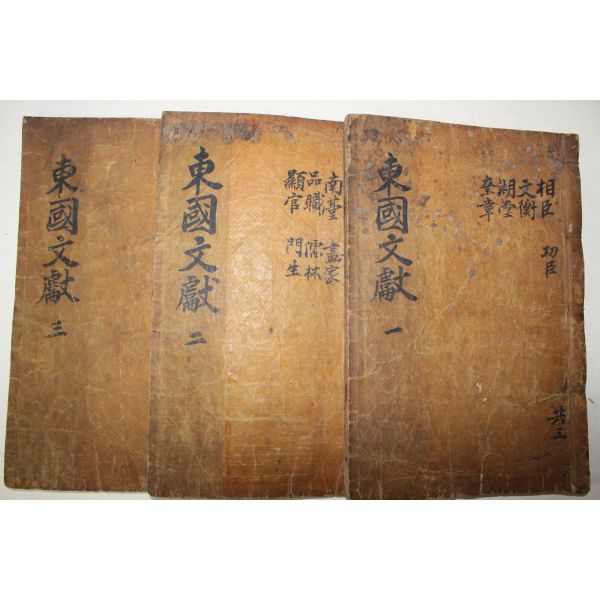 東國文獻 一
相臣 功臣
文衡
湖堂
奎章
共三
東國文獻 二
南臺 畫家
品職 儒林
顯官 門生
東國文獻 三